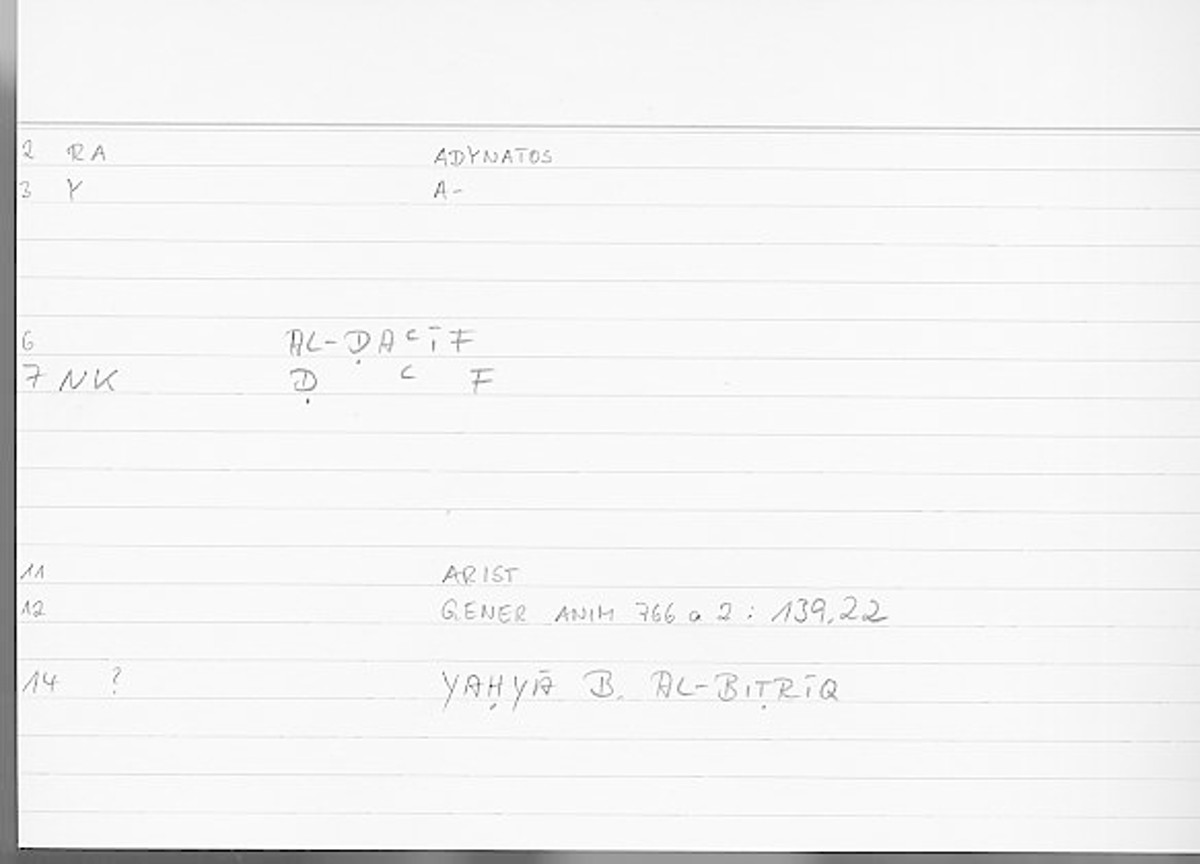 2 RA ADYNATOS
3 Y A-
6 AL-ḌAᶜĪF
7 NK Ḍ ᶜ F
11 ARIST
12 GENER ANIM 766 a 2 : 139,22
14 ? YAḤYĀ B. AL-BIṬRĪQ